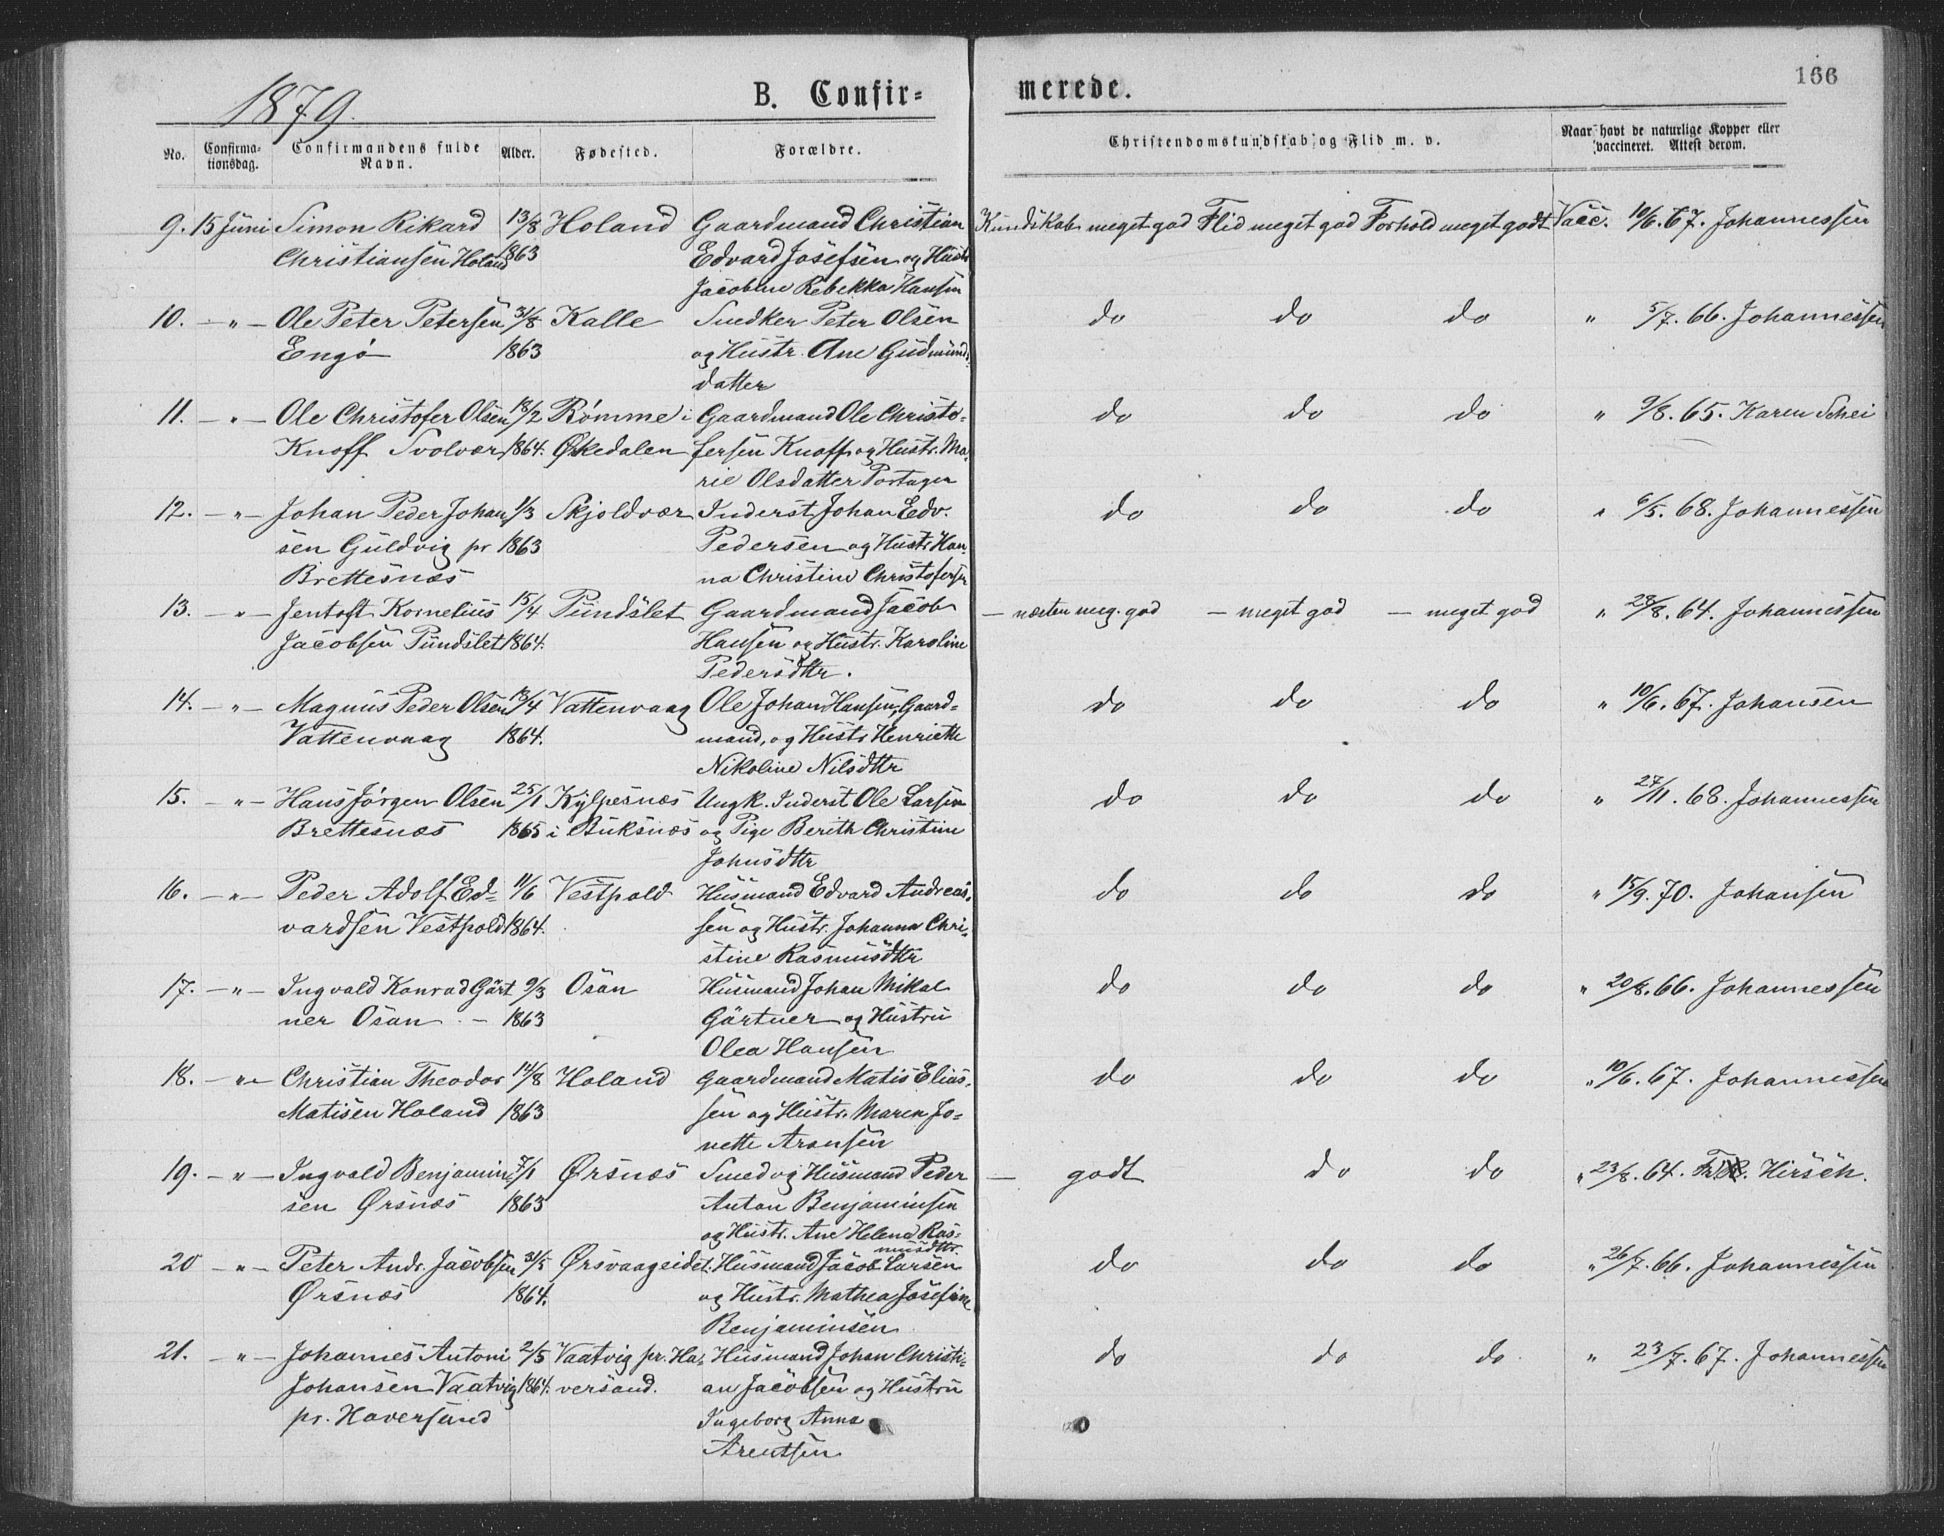 1879.
B. Confir-
merede.
166
No.
Confirma-
tionsdag.
Confirmandens fulde
Navn.
Alder.
Fødested.
Forældre.
Christendomskundskab og Flid m. v.
Naar havt de naturlige Kopper eller
vaccineret. Attest derom.
9. 15 Juni Simon Rikard 13/8 Holand Gaardmand Christian Kundskab meget god Flid meget god Forhold meget godt Vacc. 10/6. 67. Johannessen
Christiansen Holand 1863 Edvard Josefsen og Hustr
Jacobine Rebekka Hansen
10. – " – Ole Peter Petersen 31/8 Kalle Snedker Peter Olsen do do do " 5/7. 66. Johannessen
Engø 1863 og Hustr. Ane Gudmunds
datter
11. – " – Ole Christofer Olsen 18/2 Rømme i Gaardmand Ole Christo- do do do " 9/8. 65. Karen Schei
Knoff Svolvær 1864. Ørkedalen fersen Knoff og Hustr. Ma-
rie Olsdatter Portagen
12. – " – Johan Peder Johan 1/3 Skjoldvær Inderst Johan Edv. do do do " 6/5. 68. Johannessen
sen Guldvig pr 1863 Pedersen og Hustr Han
Brettesnæs na Christine Christofersen
13. – " – Jentoft Kornelius 15/4 Pundslet Gaardmand Jacob – næsten meg. god – meget god – meget god " 28/8. 64. Johannessen
Jacobsen Pundslet 1864. Hansen og Hustr. Karoline
Pedersdttr.
14. – " – Magnus Peder Olsen 13/4 Vattenvaag Ole Johan Hansen, Gaard- do do do " 10/6. 67. Johansen
Vattenvaag 1864. mand, og Hustr Henriette
Nikoline Nilsdttr
15. – " – Hans Jørgen Olsen 25/1 Kylpesnæs Ungk. Inderst Ole Larsen do do do " 27/11. 68. Johannessen
Brettesnæs 1865 i Buksnæs og Pige Bereth Christine
Johnsdttr
16. – " – Peder Adolf Ed- 11/6 Vestpold Husmand Edvard Andreas- do do do " 15/9. 70. Johansen
vardsen Vestpold 1864. sen og Hustr. Johanna Chri-
stine Rasmusdttr
17. – " – Ingvald Konrad Gärt 9/3 Osan Husmand Johan Mikal do do do " 20/8. 66. Johannessen
ner Osan – 1863 Gärtner og Hustru
Olea Hansen
18. – " – Christian Theodor 14/8 Holand Gaardmand Matis Elias- do do do " 10/6. 67. Johannessen
Matisen Holand 1863 sen og Hustr. Maren Jo-
nette Aronsen
19. – " – Ingvald Benjamin 7/1 Ørsnæs Smed og Husmand Peder – godt do do " 23/8. 64. Hirsch.
sen Ørsnæs 1863 Anton Benjaminsen
og Hustr. Ane Helena Ras-
musdttr.
20 – " – Peter Andr. Jacobsen 31/5 Ørsvaageidet. Husmand Jacob Larsen do do do " 26/7. 66. Johannessen
Ørsnæs 1864. og Hustr. Mathea Josefine
Benjaminsen
21. – " – Johannes Antoni 2/5 Vaatvig pr. Ha- Husmand Johan Christi- do do do " 23/7. 67. Johannessen
Johansen Vaatvig 1864. versand. an Jacobsen og Hustru
pr. Haversund Ingeborg Anna
Arentsen